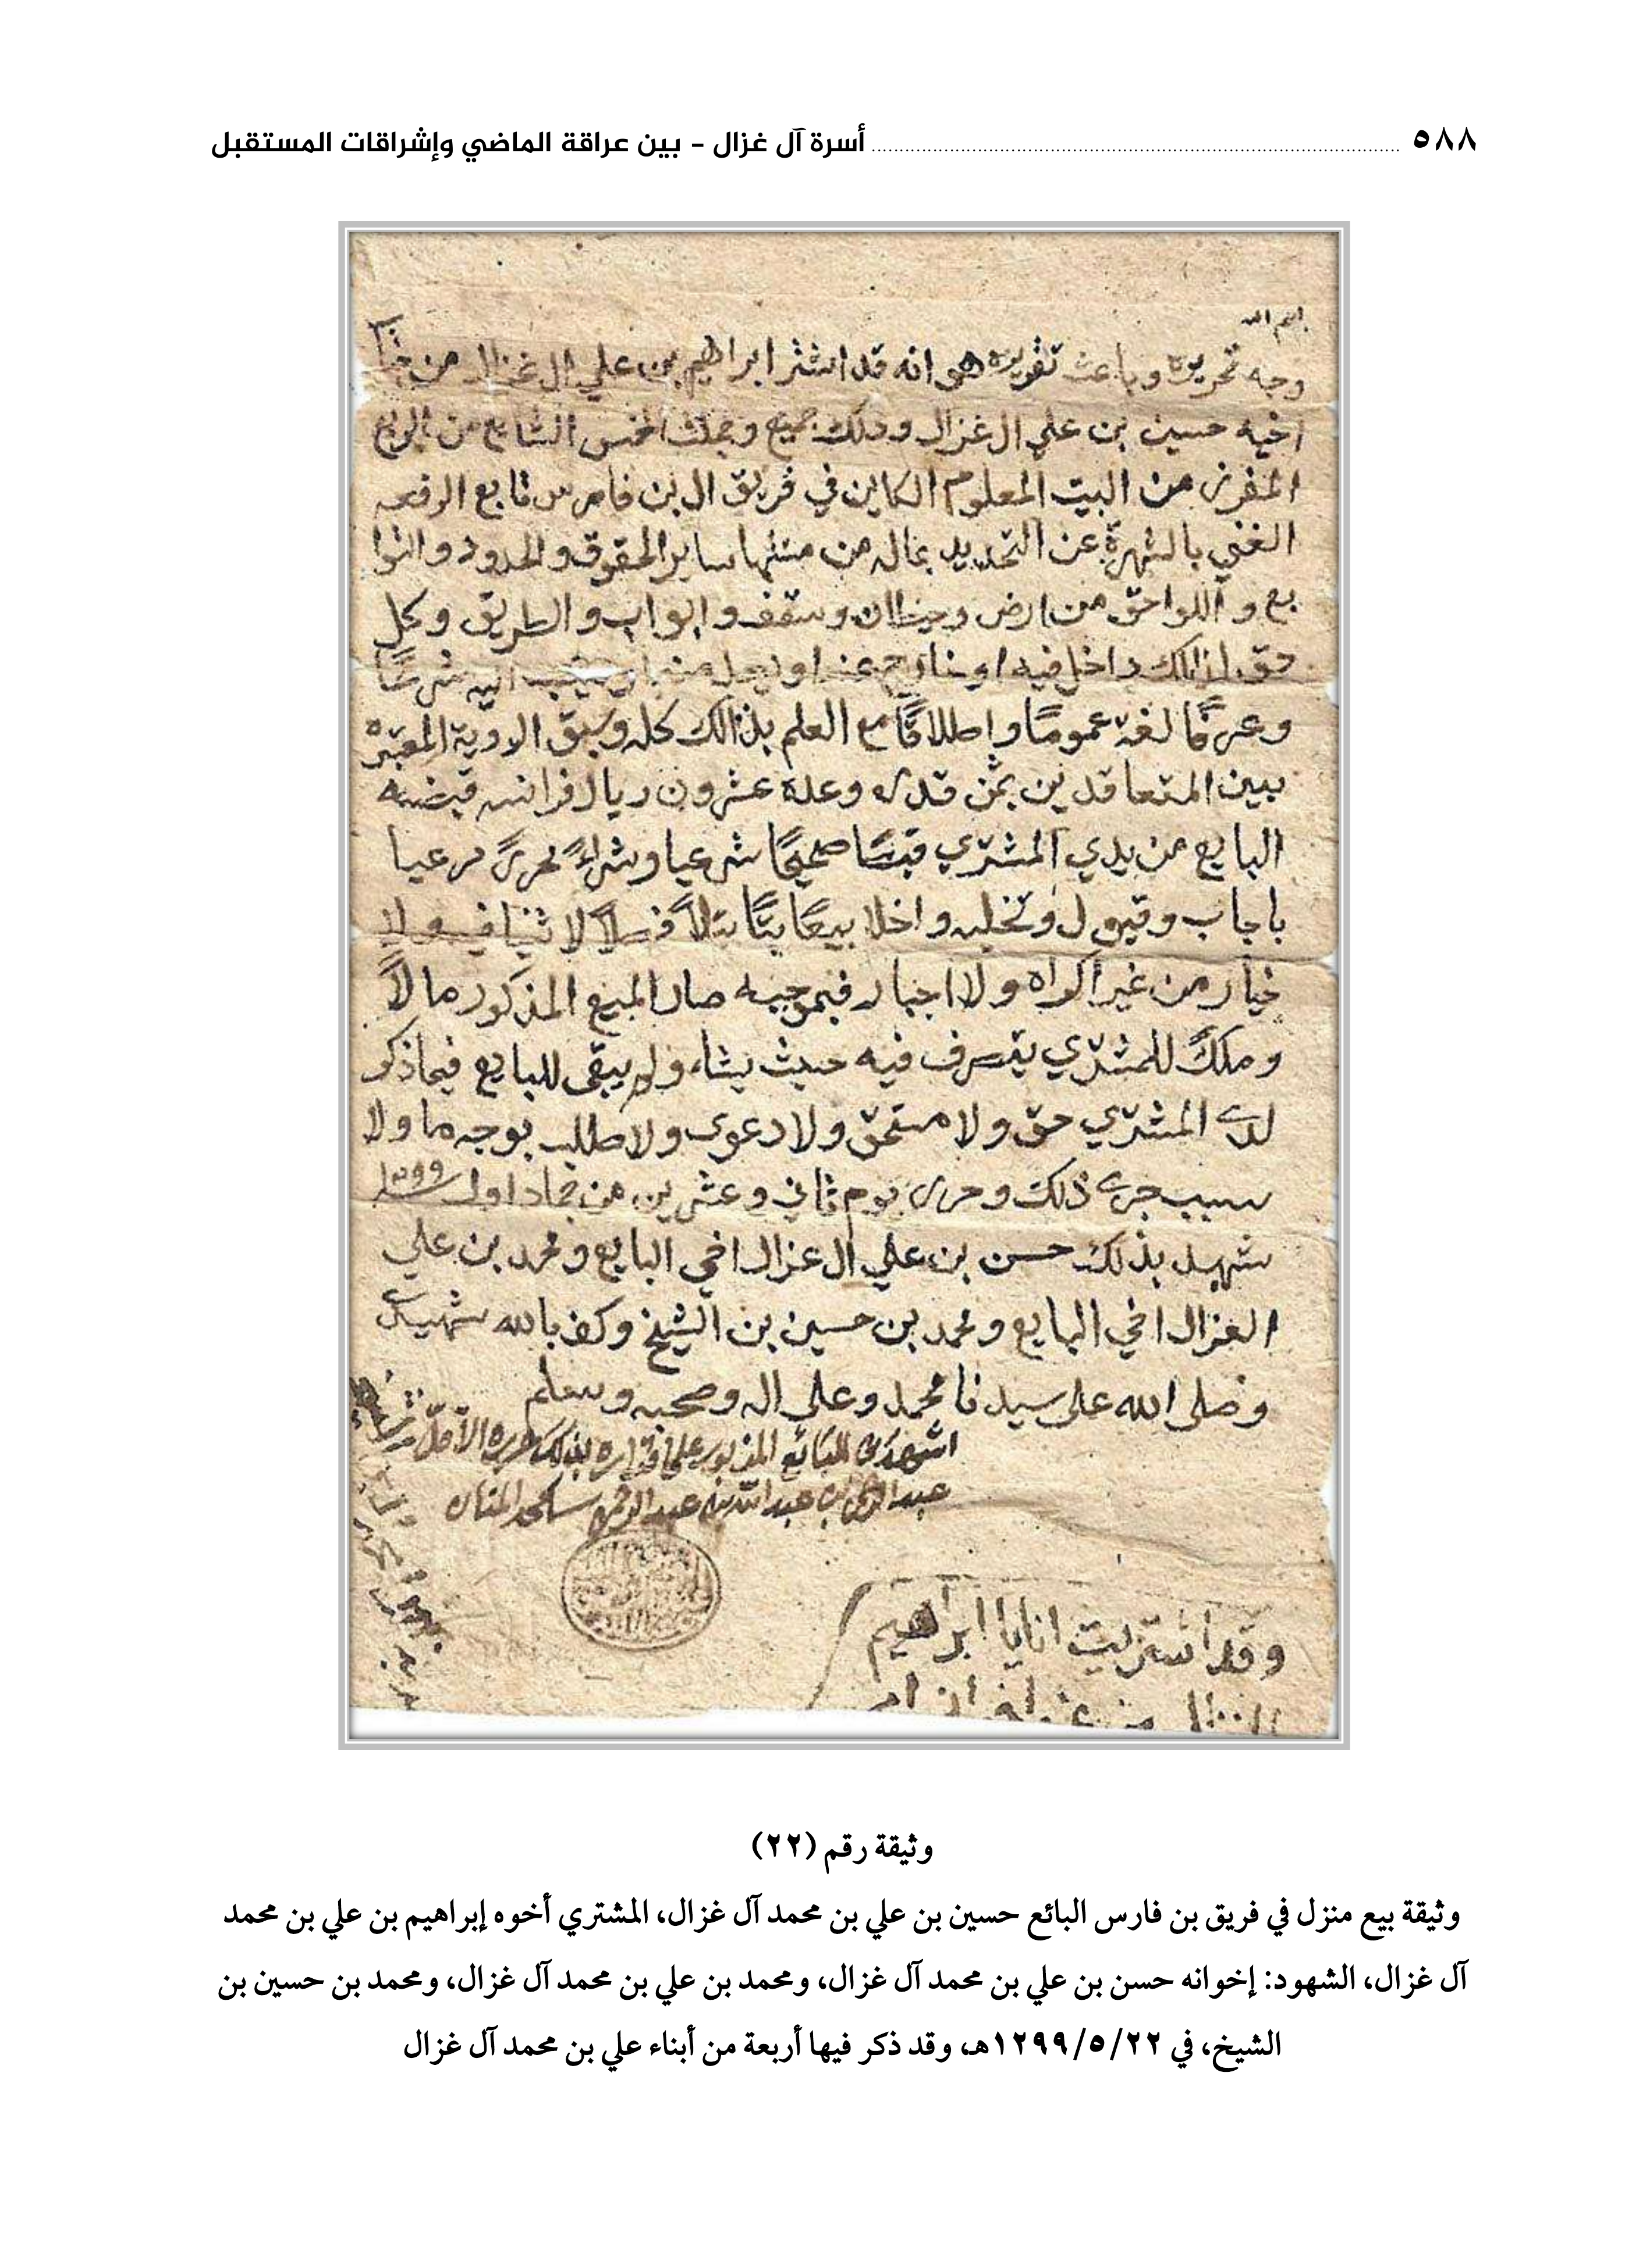 ٥٨٨ أسرة آل غزال - بين عراقة الماضي وإشراقات المستقبل
بسم الله
وجه تحريره وباعث تقريره هو انه قد اشتر ابراهيم بن علي ال غزال من
اخيه حسين بن علي ال غزال وذلك جميع وجملت الخمس الشايع من الربع
المفرز من البيت المعلوم الكاين في فريق ال بن فارس تابع الرفعه
الغني بالشهرة عن التحديد بماله من منتهاء ساير الحقوق والحدود والتوا
بع و اللواحق من ارض وحيطان وسقف وابواب والطريق وكل
حق لذالك داخل فيه او خارج عنه او اليه شرعًا
وعرفًا لغة عمومًا وإطلاقًا مع العلم بذالك كله وسبق الاروية المعتبره
بين المتعاقدين بثمن قدره وعدة عشرون ريال فرانسه قبضه
البايع من يدي المشتري قبضًا صحيحًا شرعيا وشراءً محررً مرعيا
باجاب وقبول وتخليه واخلا بيعًا بتًا بتلاً فصلاً لا ثنيا فيه ولا
خيار من غير اكراه ولا اجبار فبموجبه صار المبيع المذكور مالاً
وملكً للمشتري يتصرف فيه حيث يشاء ولم يبقى للبايع فيما ذكر
لدى المشتري حق ولا مستحق ولا دعوى ولا طلب بوجه ما ولا
سبب جرى ذلك وحرر يوم ثاني وعشرين من جماد اول سنة ١٢٩٩
شهد بذلك حسن بن علي ال غزال اخي البايع ومحمد بن علي
الغزال اخي البايع ومحمد بن حسين بن الشيخ وكفى بالله شهيد
وصلى الله على سيدنا محمد وعلى اله وصحبه وسلم
اشهدني البائع المذبور على اقراره بذلك حرره الأقل
عبد الرحمن بن عبد الله بن عبد الرحمن
وقد اشتريت انا يا ابراهيم
وثيقة رقم (٢٢)
وثيقة بيع منزل في فريق بن فارس البائع حسين بن علي بن محمد آل غزال، المشتري أخوه إبراهيم بن علي بن محمد
آل غزال، الشهود: إخوانه حسن بن علي بن محمد آل غزال، ومحمد بن علي بن محمد آل غزال، ومحمد بن حسين بن
الشيخ، في ١٢٩٩/٥/٢٢هـ، وقد ذكر فيها أربعة من أبناء علي بن محمد آل غزال